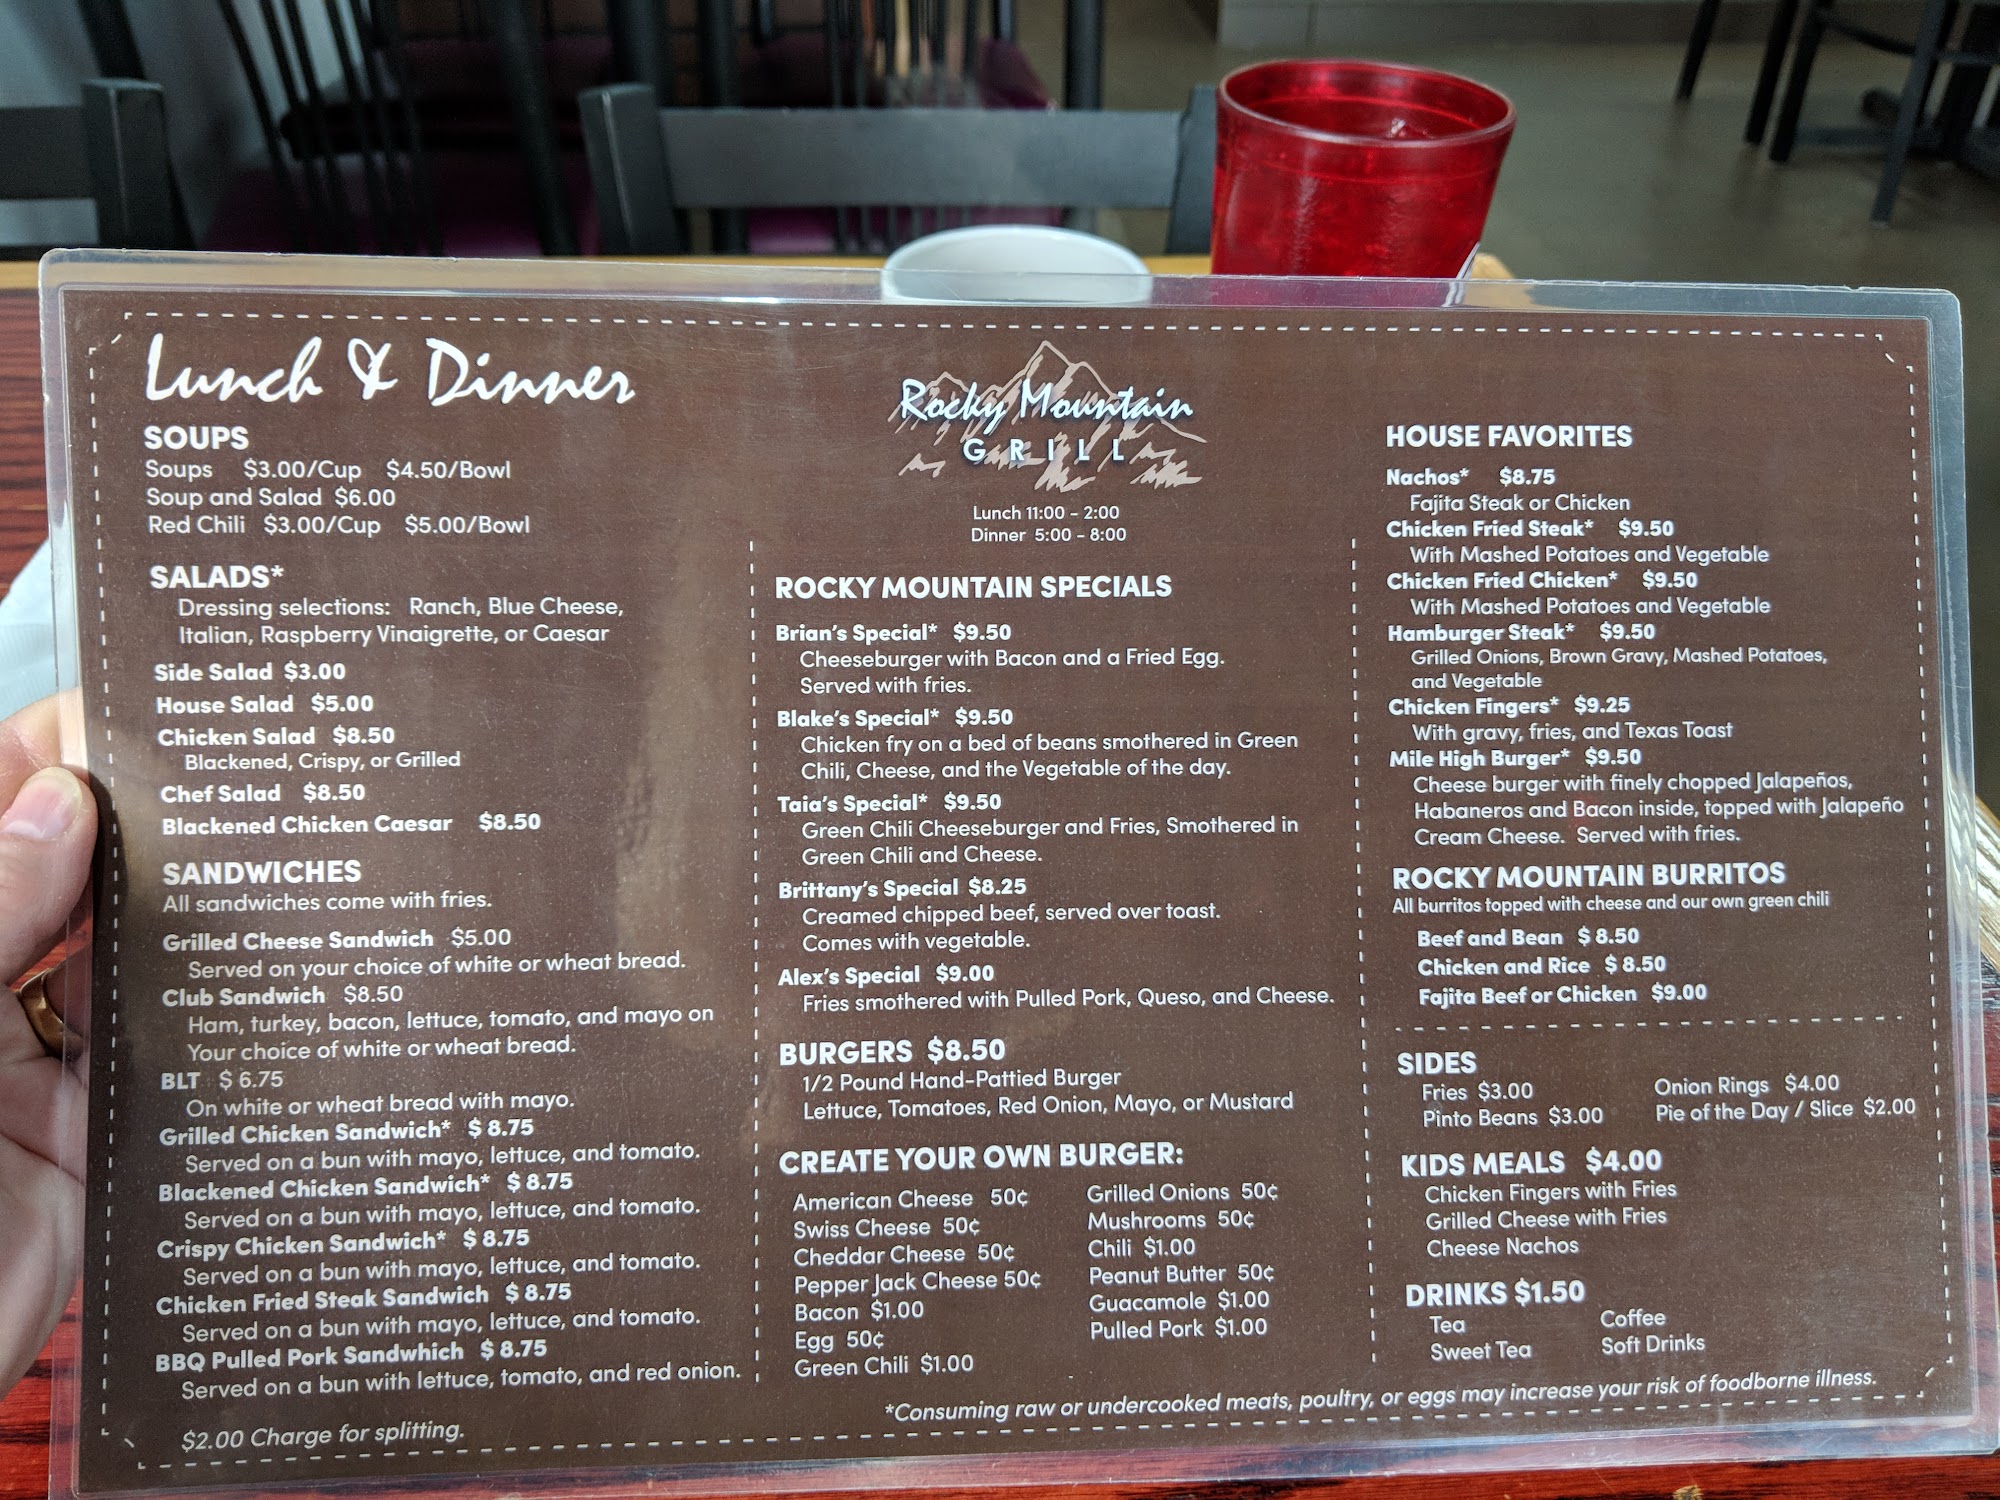 Lunch & Dinner
SOUPS
Soups $3.00/Cup $4.50/Bowl
Soup and Salad $6.00
Red Chili $3.00/Cup $5.00/Bowl
SALADS*
Dressing selections: Ranch, Blue Cheese,
Italian, Raspberry Vinaigrette, or Caesar
Side Salad $3.00
House Salad $5.00
Chicken Salad $8.50
Blackened, Crispy, or Grilled
Chef Salad $8.50
Blackened Chicken Caesar $8.50
SANDWICHES
All sandwiches come with fries.
Grilled Cheese Sandwich $5.00
Served on your choice of white or wheat bread.
Club Sandwich $8.50
Ham, turkey, bacon, lettuce, tomato, and mayo on
Your choice of white or wheat bread.
BLT $ 6.75
On white or wheat bread with mayo.
Grilled Chicken Sandwich* $ 8.75
Served on a bun with mayo, lettuce, and tomato.
Blackened Chicken Sandwich* $ 8.75
Served on a bun with mayo, lettuce, and tomato.
Crispy Chicken Sandwich* $ 8.75
Served on a bun with mayo, lettuce, and tomato.
Chicken Fried Steak Sandwich $ 8.75
Served on a bun with mayo, lettuce, and tomato.
BBQ Pulled Pork Sandwhich $ 8.75
Served on a bun with lettuce, tomato, and red onion.
$2.00 Charge for splitting.
Rocky Mountain
GRILL
Lunch 11:00 - 2:00
Dinner 5:00 - 8:00
ROCKY MOUNTAIN SPECIALS
Brian's Special* $9.50
Cheeseburger with Bacon and a Fried Egg.
Served with fries.
Blake's Special* $9.50
Chicken fry on a bed of beans smothered in Green
Chili, Cheese, and the Vegetable of the day.
Taia's Special* $9.50
Green Chili Cheeseburger and Fries, Smothered in
Green Chili and Cheese.
Brittany's Special $8.25
Creamed chipped beef, served over toast.
Comes with vegetable.
Alex's Special $9.00
Fries smothered with Pulled Pork, Queso, and Cheese.
BURGERS $8.50
1/2 Pound Hand-Pattied Burger
Lettuce, Tomatoes, Red Onion, Mayo, or Mustard
CREATE YOUR OWN BURGER:
American Cheese 50¢
Swiss Cheese 50¢
Cheddar Cheese 50¢
Pepper Jack Cheese 50¢
Bacon $1.00
Egg 50¢
Green Chili $1.00
Grilled Onions 50¢
Mushrooms 50¢
Chili $1.00
Peanut Butter 50¢
Guacamole $1.00
Pulled Pork $1.00
HOUSE FAVORITES
Nachos* $8.75
Fajita Steak or Chicken
Chicken Fried Steak* $9.50
With Mashed Potatoes and Vegetable
Chicken Fried Chicken* $9.50
With Mashed Potatoes and Vegetable
Hamburger Steak* $9.50
Grilled Onions, Brown Gravy, Mashed Potatoes,
and Vegetable
Chicken Fingers* $9.25
With gravy, fries, and Texas Toast
Mile High Burger* $9.50
Cheese burger with finely chopped Jalapeños,
Habaneros and Bacon inside, topped with Jalapeño
Cream Cheese. Served with fries.
ROCKY MOUNTAIN BURRITOS
All burritos topped with cheese and our own green chili
Beef and Bean $ 8.50
Chicken and Rice $ 8.50
Fajita Beef or Chicken $9.00
SIDES
Fries $3.00
Pinto Beans $3.00
Onion Rings $4.00
Pie of the Day / Slice $2.00
KIDS MEALS $4.00
Chicken Fingers with Fries
Grilled Cheese with Fries
Cheese Nachos
DRINKS $1.50
Tea
Sweet Tea
Coffee
Soft Drinks
*Consuming raw or undercooked meats, poultry, or eggs may increase your risk of foodborne illness.